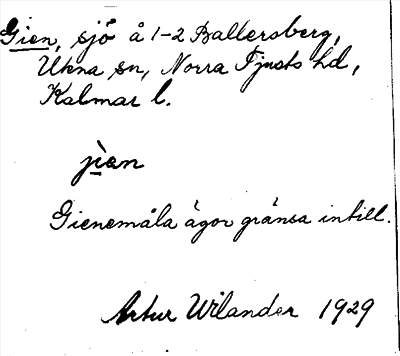 Gien, sjö å 1-2 Ballersberg,
Ukna sn, Norra Tjusts hd,
Kalmar l.
jìen
Gienemåla ägor gränsa intill.
Artur Wilander 1929